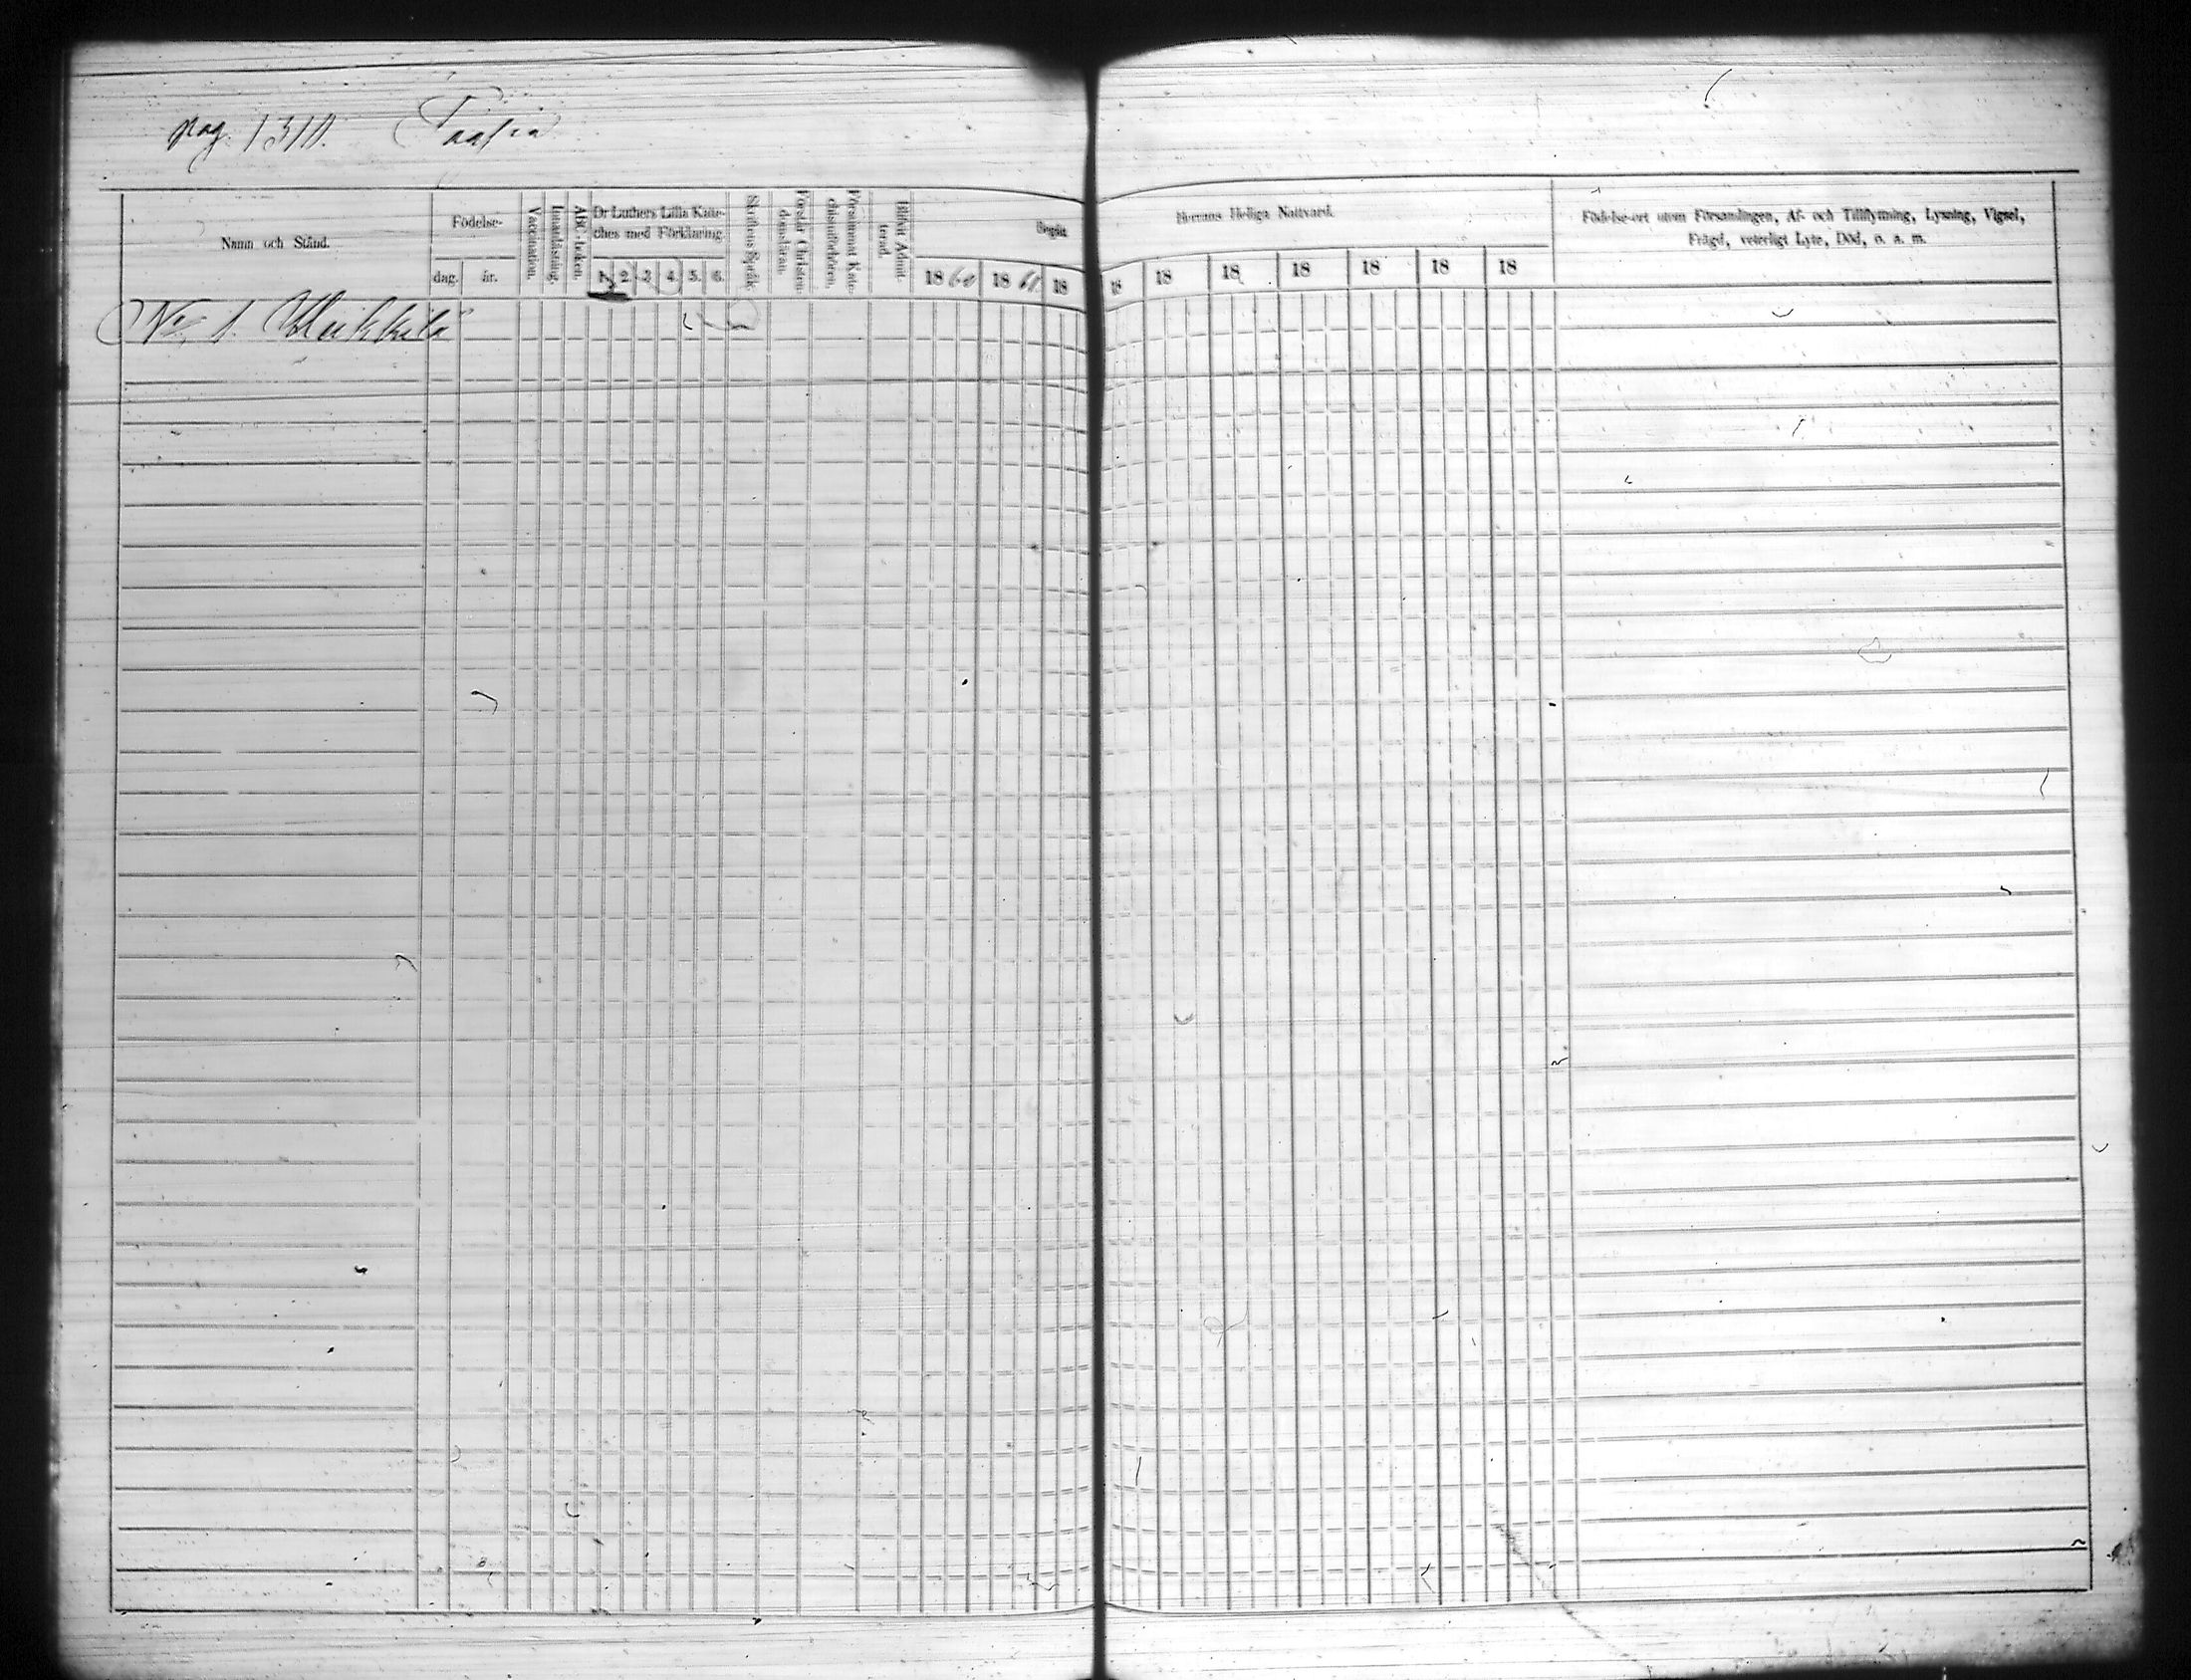 pag. 1311. Paasia
Namn och Stånd.
Födelse-
dag. år.
Vaccination.
Innanläsning.
ABC-boken.
Dr Luthers Lilla Kate-
ches med Förklaring
1. 2. 3. 4. 5. 6.
Skriftens Språk.
Förstår Christen-
domsläran.
Försummat Kate-
chismiförhören.
Blifvit Admit-
terad.
Begått
Herrans Heliga Nattvard.
1860 1861 18 18 18 18 18 18 18 18
Födelse-ort utom Församlingen, Af- och Tillflyttning, Lysning, Vigsel,
Frägd, veterligt Lyte, Död, o. a. m.
No 1. Heikkilä